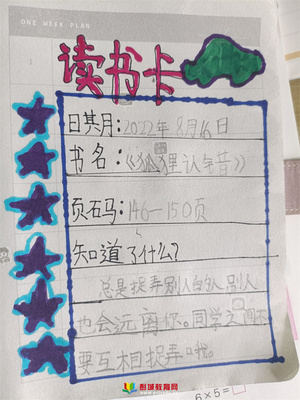 ONE WEEK PLAN
读书卡
日其月:2022年8月16日
书名:《狐狸认错》
页石马:146—150页
知道了什么?
总是捉弄别人的人,别人
也会远离你。同学之间不
要互相捉弄哦。
彭城教育网
6×5=